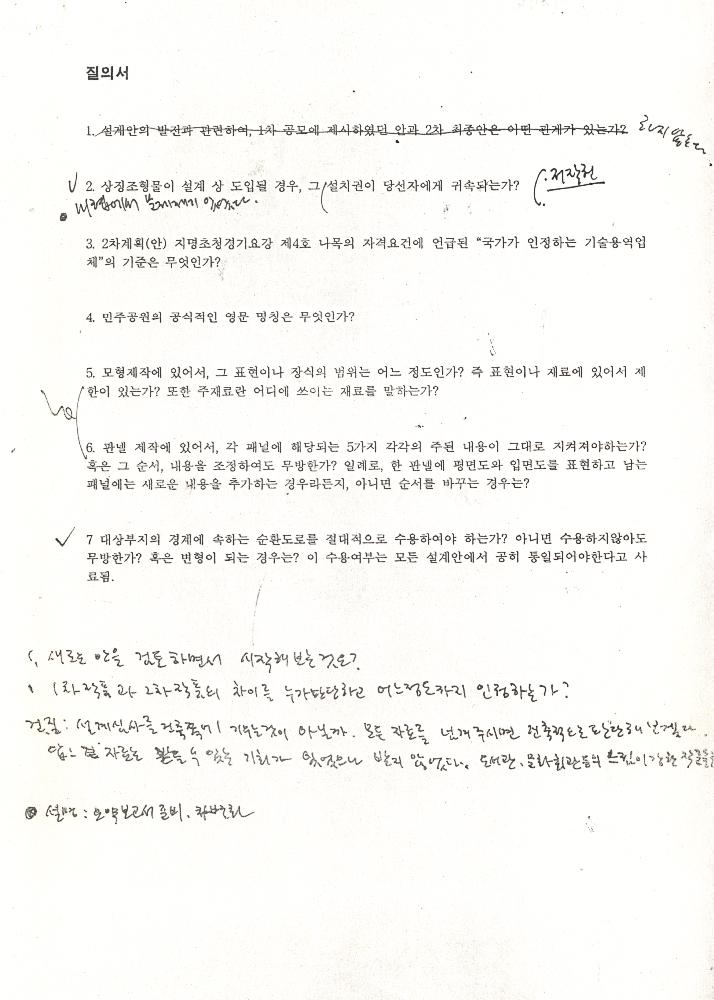 질의서
1. 설계안의 발전과 관련하여, 1차 공모에 제시하였던 안과 2차 최종안은 어떤 관계가 있는가?
2. 상징조형물이 설계 상 도입될 경우, 그 설치권이 당선자에게 귀속돠는가? 저작권
3. 2차계획(안) 지명초청경기요강 제4호 나목의 자격요건에 언급된 “국가가 인정하는 기술용역업
체”의 기준은 무엇인가?
4. 민주공원의 공식적인 영문 명칭은 무엇인가?
5. 모형제작에 있어서, 그 표현이나 장식의 범위는 어느 정도인가? 즉 표현이나 재료에 있어서 제
한이 있는가? 또한 주재료란 어디에 쓰이는 재료를 말하는가?
6. 판넬 제작에 있어서, 각 패널에 해당되는 5가지 각각의 주된 내용이 그대로 지켜져야하는가?
혹은 그 순서, 내용을 조정하여도 무방한가? 일례로, 한 판넬에 평면도와 입면도를 표현하고 남는
패널에는 새로운 내용을 추가하는 경우라든지, 아니면 순서를 바꾸는 경우는?
7 대상부지의 경계에 속하는 순환도로를 절대적으로 수용하여야 하는가? 아니면 수용하지않아도
무방한가? 혹은 변형이 되는 경우는? 이 수용여부는 모든 설계안에서 공히 통일되어야한다고 사
료됨.
새로운 안을 검토하면서 시작해 보는 것은?
1차작품과 2차작품의 차이를 누가판단하고 어느정도까지 인정하는가?
설계심사를 건축쪽에 기우는것이 아닐까. 모든 자료를 넘겨주시면 건축적으로 판단해 보겠다.
자료는 받을 수 있는 기회가 있었으나 받지 않았다. 도서관, 문화회관등의
설명: 요약보고서 준비.